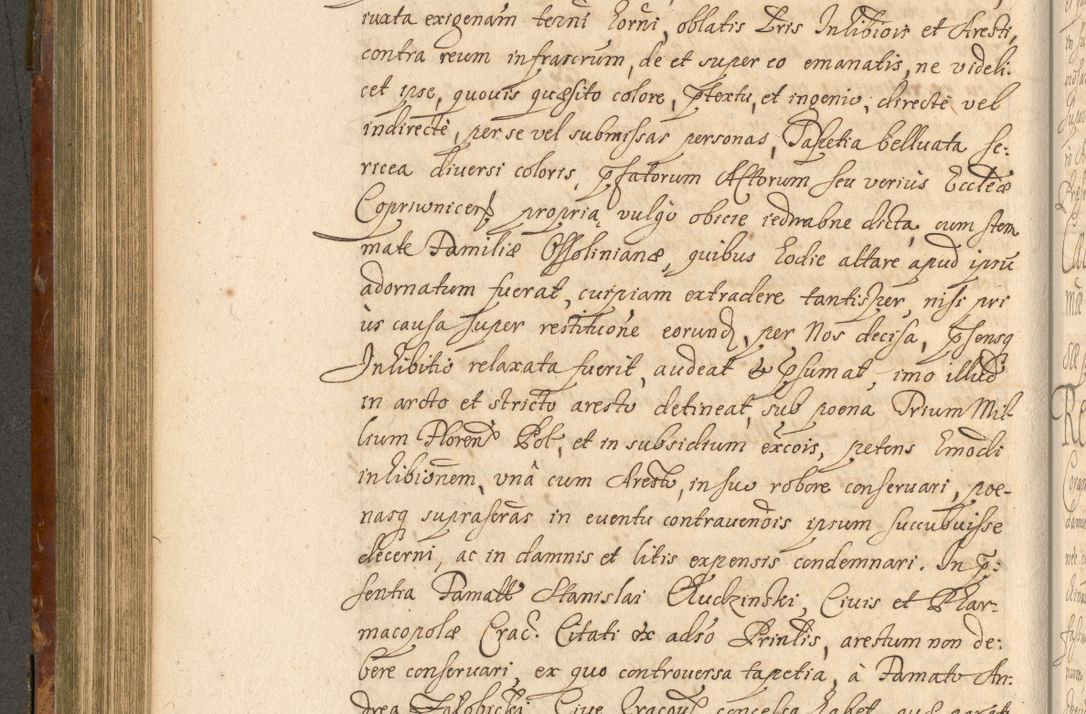 iuxta exigenam terñi horñi, oblatis Lris Inhibiois et Aresti,
contra reum infrascrum, de et super eo emanatis, ne videli:
cet ipse, quouis quæsito colore, ptextu, et ingenio, directè vel
indirectè, per se vel submissas personas, Tapetia belluata se:
ricea diuersi coloris, pfatorum Actorum seu verius Eccleæ
propria vulgo obicie iedwabne dicta, cum stem
mate Familiæ Ossolinianæ, quibus hodie altare apud ipsu
adornatum fuerat, cuipiam extradere tantisper, nisi pri
us causa super restitucone eorund, per Nos decisa, psensq
Inhibitio relaxata fuerit, audeat & psumat, imo illud
in arcto et stricto aresto detineat, sub poena Trium Mil
lium Floren Pol, et in subsidium excois, petens hmodi
inhibionem, vnâ cum Aresto, in suo robore conseruari, poe-
nasq suprascras in euentu contrauendis ipsum succubuisse
decerni, ac in damnis et litis expensis condemnari. In p:
sentia Famati Stanislai Ciuis et Phar-
macopolæ Crac. Citati ex adso Prinlis, arestum non de:
bere conseruari, ex quo controuersa tapetia, à Famato An:
drea Ciue concessa habet, quæ parati